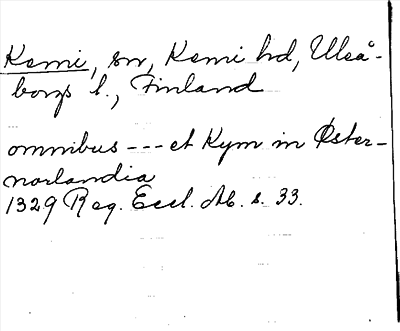 Kemi, sn, Kemi hd, Uleå-
borgs l., Finland
omnibus --- et Kym in Øster-
norlandia
1329 Reg. Eccl. Ab. s. 33.